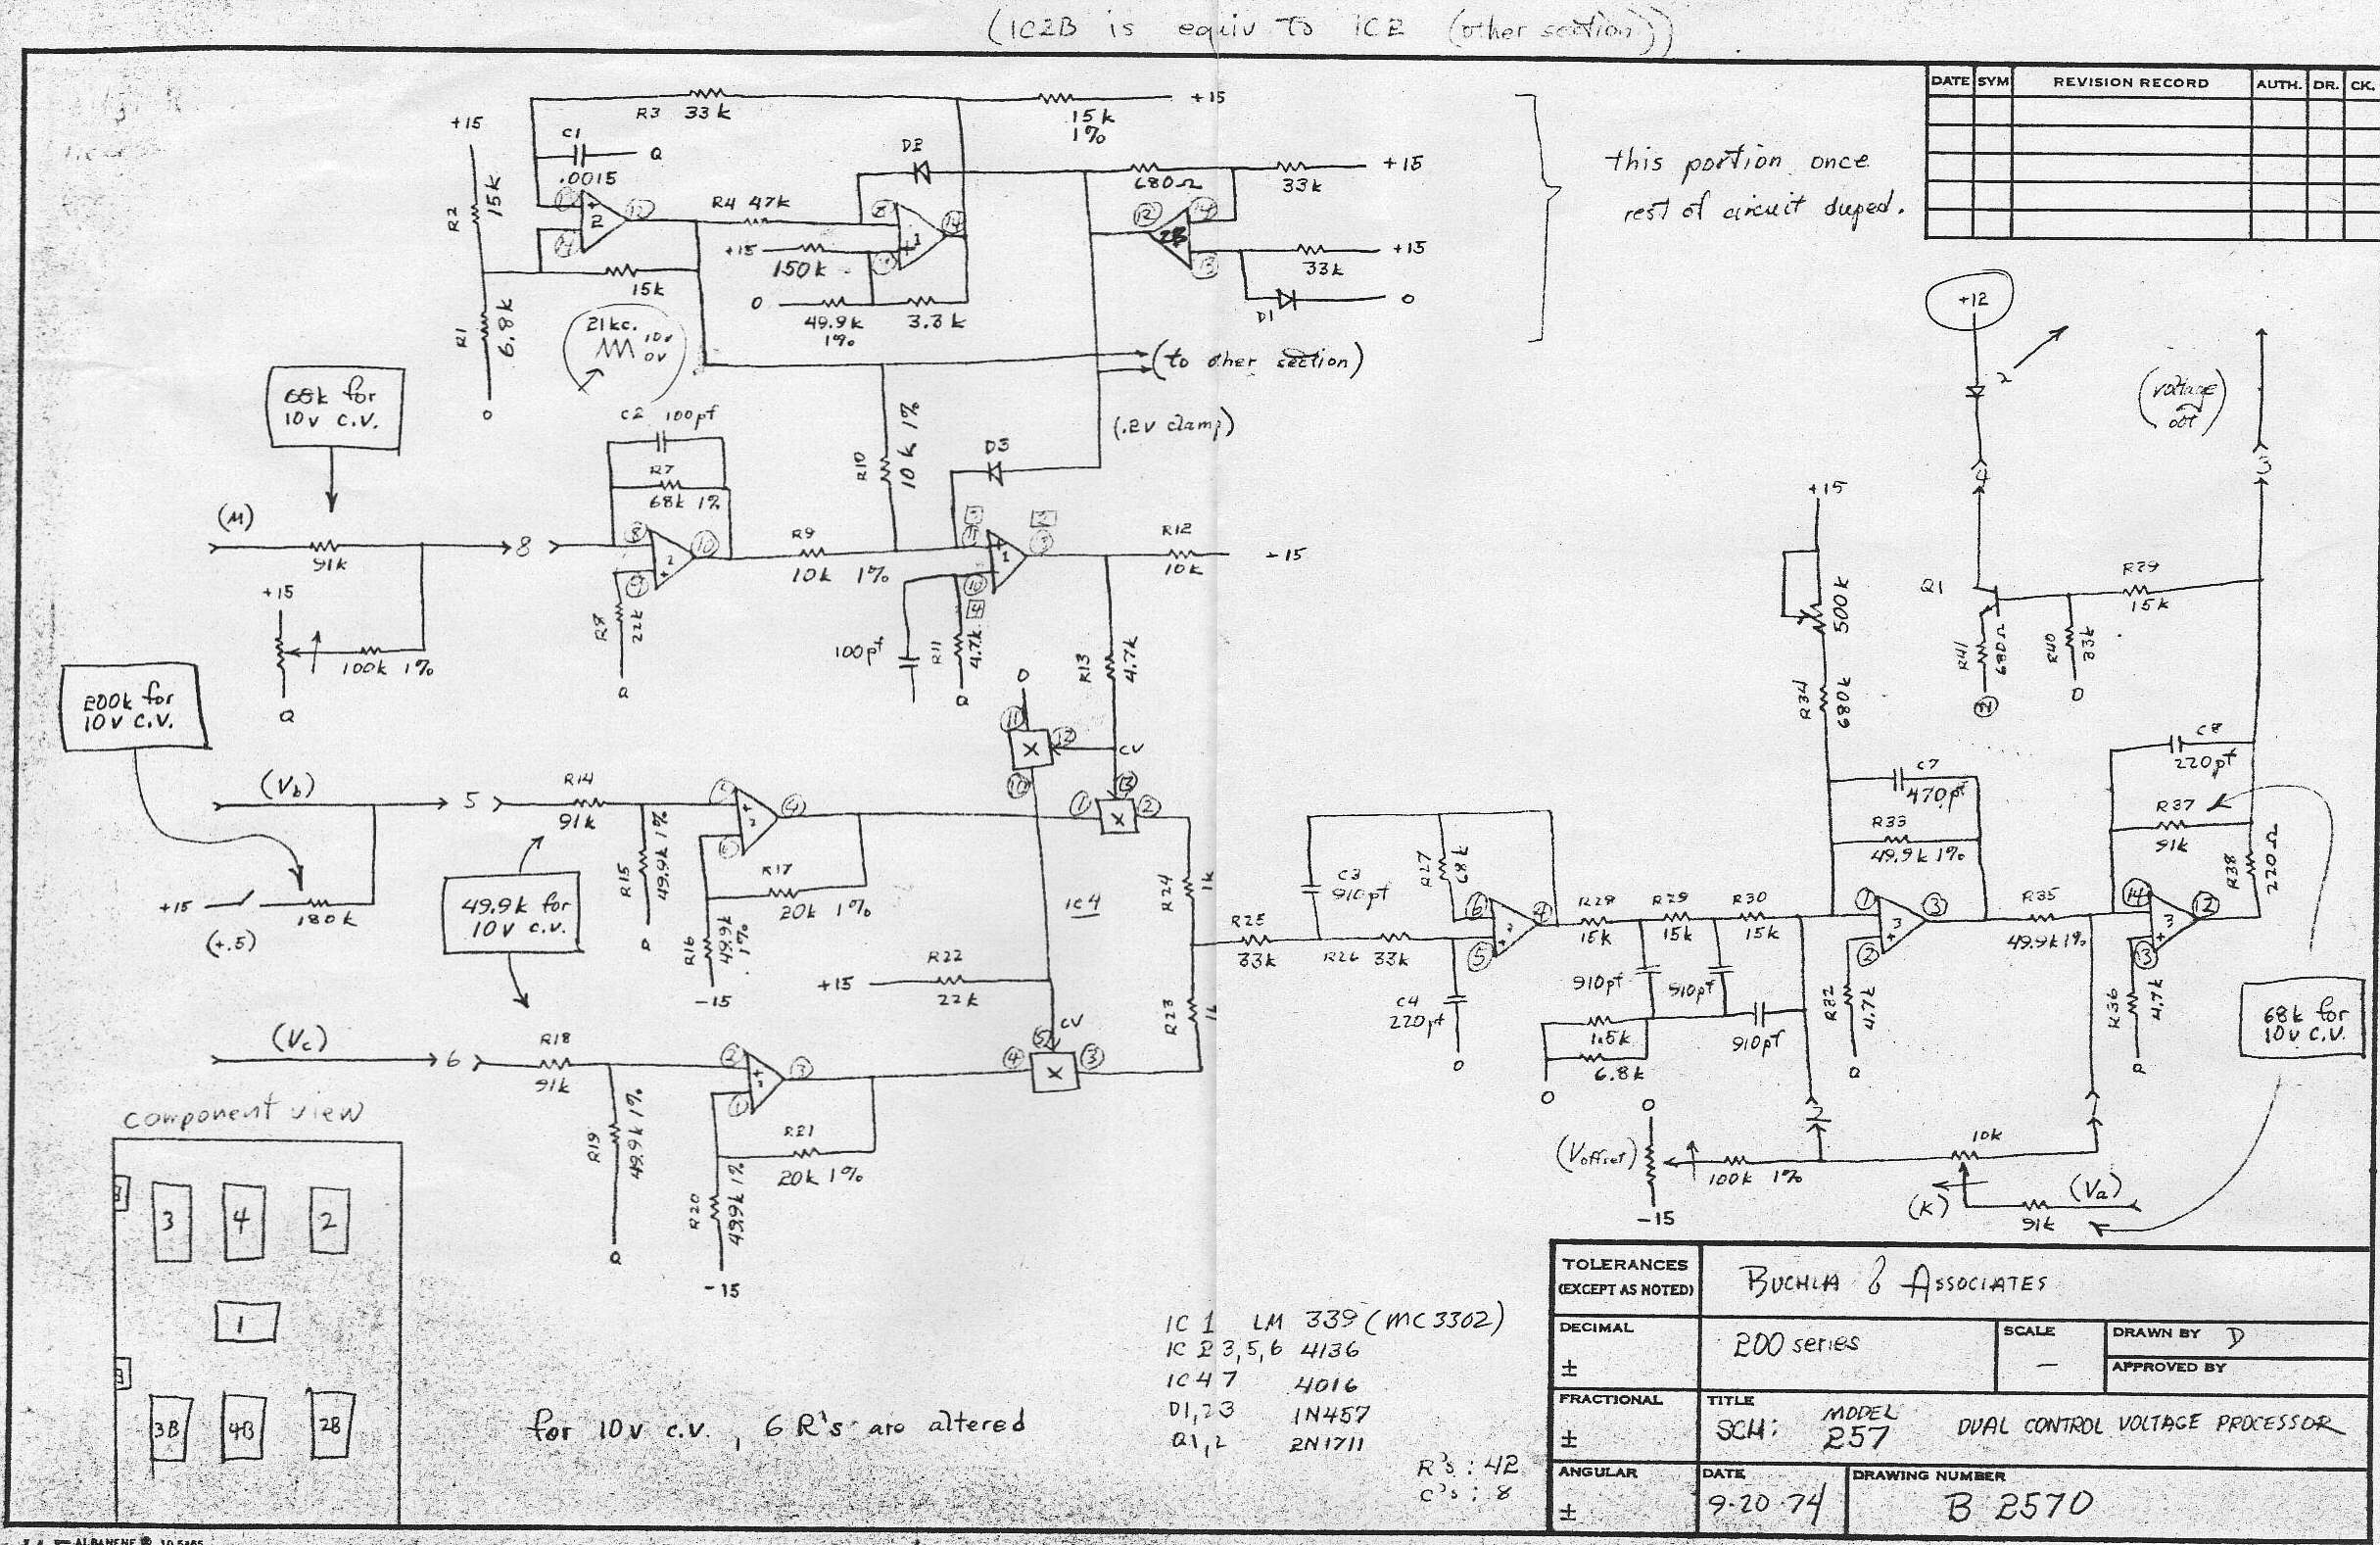 (IC2B is equiv to IC2 (other section))
DATE SYM REVISION RECORD AUTH. DR. CK.
this portion once
rest of circuit duped.
+15
R3 33k
15k
1%
+15
C1
.0015
D2
680Ω
33k
+15
R2
15k
R4 47k
+15
150k
2B
33k
+15
D1
R1
6.8k
15k
49.9k
1%
3.3k
21kc.
10v
0v
(to other section)
(.2v clamp)
68k for
10v c.v.
C2 100pf
R7
68k 1%
R10
10k 1%
D3
(M)
91k
8
R8
22k
R9
10k 1%
R12
10k
-15
+15
100k 1%
100pf
R11
4.7k
R13
4.7k
200k for
10v c.v.
(Vb)
5
R14
91k
R15
49.9k 1%
R17
20k 1%
R16
49.9k
1%
-15
+15
(+.5)
180k
49.9k for
10v c.v.
X
CV
X
IC4
+15
R22
22k
R24
1k
R23
1k
(Vc)
6
R18
91k
R19
49.9k 1%
R21
20k 1%
R20
49.9k 1%
-15
CV
X
R25
33k
C3
910pf
R27
68k
R26 33k
C4
220pf
R28
15k
R29
15k
R30
15k
910pf
910pf
910pf
1.5k
6.8k
+15
500k
R34
680k
C7
470pf
R33
49.9k 1%
R32
4.7k
R35
49.9k 1%
R36
4.7k
C8
220pf
R37
91k
R38
220Ω
+12
(voltage
out)
Q1
R39
15k
R41
680Ω
R40
33k
68k for
10v c.v.
(Voffset)
-15
100k 1%
10k
(K)
(Va)
91k
component view
3 4 2
1
3B 4B 2B
for 10v c.v., 6 R's are altered
IC 1 LM 339 (MC3302)
IC 2 3,5,6 4136
IC 4 7 4016
D1,2 3 1N457
Q1,2 2N1711
R's : 42
C's : 8
TOLERANCES
(EXCEPT AS NOTED)
BUCHLA & ASSOCIATES
DECIMAL
±
200 series
SCALE
—
DRAWN BY D
APPROVED BY
FRACTIONAL
±
TITLE
SCH: MODEL 257 DUAL CONTROL VOLTAGE PROCESSOR
ANGULAR
±
DATE
9-20-74
DRAWING NUMBER
B 2570